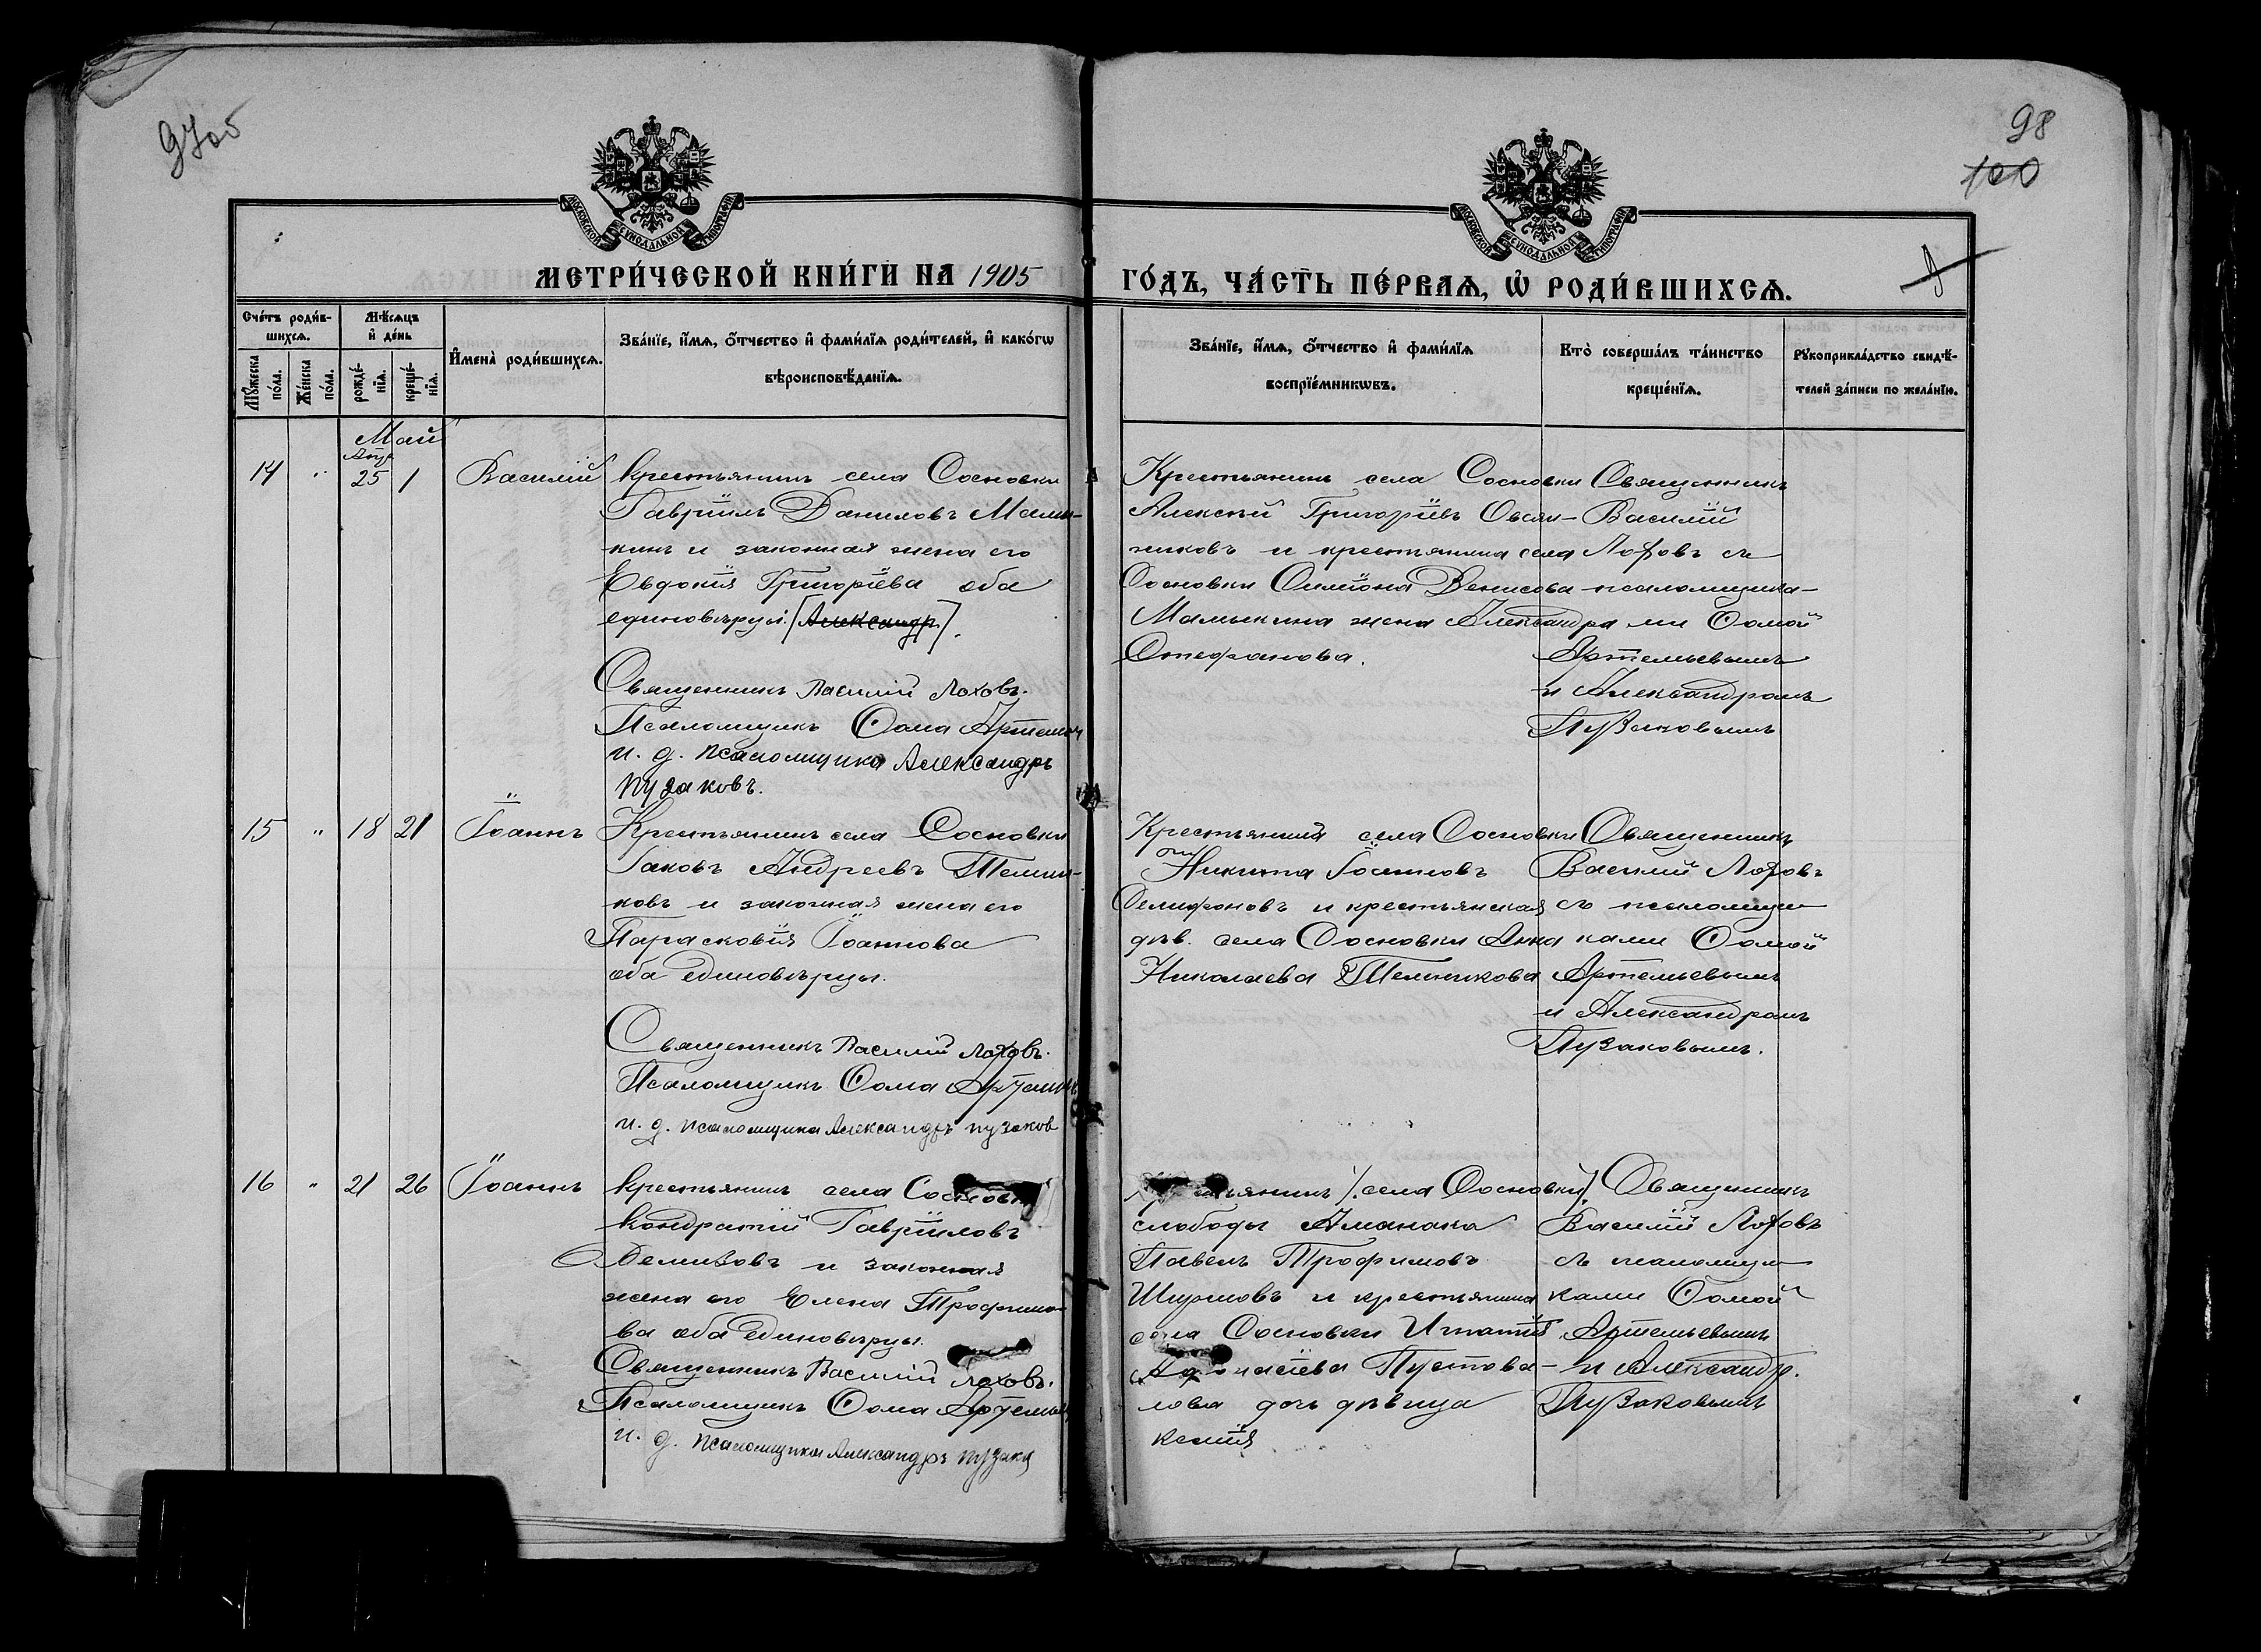 97об
98
100
МОСКОВСКОЙ СѴНОДАЛЬНОЙ ТИПОГРАФІИ
МОСКОВСКОЙ СѴНОДАЛЬНОЙ ТИПОГРАФІИ
МЕТРИ́ЧЕСКОЙ КНИ́ГИ НА 1905
ГО́ДЪ, ЧА́СТЬ ПЕ́РВАѦ, Ѡ҆ РОДИ́ВШИХСѦ.
Сче́тъ роди́в-
шихсѧ.
Мꙋ́жеска
по́ла.
Же́нска
по́ла.
Мѣ́сѧцъ
и҆ де́нь
рожде́-
нїѧ.
креще́-
нїѧ.
И҆мена̀ роди́вшихсѧ.
Зва́нїе, и҆́мѧ, ѻ҆́тчество и҆ фамилїѧ роди́телей, и҆ како́гѡ
вѣроисповѣ́данїѧ.
Зва́нїе, и҆́мѧ, ѻ҆́тчество и҆ фами́лїѧ
воспрїе́мникѡвъ.
Кто̀ соверша́лъ та́инство
креще́нїѧ.
Рꙋкоприкла́дство свидѣ́-
телей за́писи по жела́нїю.
Май
14 " 25 1 Василій
крестьянинъ села Сосновки
Гавріилъ Даниловъ Мамы-
кинъ и законная жена его
Евдокія Григоріева оба
единовѣрцы. [Александр].
Священникъ Василій Лоховъ.
Псаломщикъ Ѳома
и. д. псаломщика Александръ
Пузаковъ.
Крестьянинъ села Сосновки
Алексѣй Григоріевъ Овсян-
никовъ и крестьянина села
Сосновки Симіона Денисова
Мамыкина жена Александра
Стефанова.
Священникъ
Василій
Лоховъ съ
псаломщика-
ми Ѳомой
Артемьевымъ
и Александромъ
Пузаковымъ
15 " 18 21 Іоаннъ
Крестьянинъ села Сосновки
Іаковъ Андреевъ
и законная жена его
Парасковія Іоаннова
оба единовѣрцы.
Священникъ Василій Лоховъ.
Псаломщикъ Ѳома
и. д. псаломщика Александръ Пузаков
села Сосновки
Никита
и крестьянская
дѣв. села Сосновки Анна
Николаева
Священникъ
Василій Лоховъ
съ псаломщи-
ками Ѳомой
Артемьевымъ
и Александромъ
Пузаковымъ.
16 " 21 26 Іоаннъ
крестьянинъ села
Кондратій Гавріиловъ
и законная
жена его Елена Трофимо-
ва оба единовѣрцы.
Священникъ Василій Лоховъ.
Псаломщикъ Ѳома
и. д. псаломщика Александръ
/. села Сосновки/.
слободы
Павелъ Трофимовъ
и крестьянина
села Сосновки Игнатія
Пустова-
лова дочь дѣвица
Ксенія
Священникъ
Василій Лоховъ
съ псаломщи-
ками Ѳомой
Артемьевымъ
и Александр.
Пузаковымъ